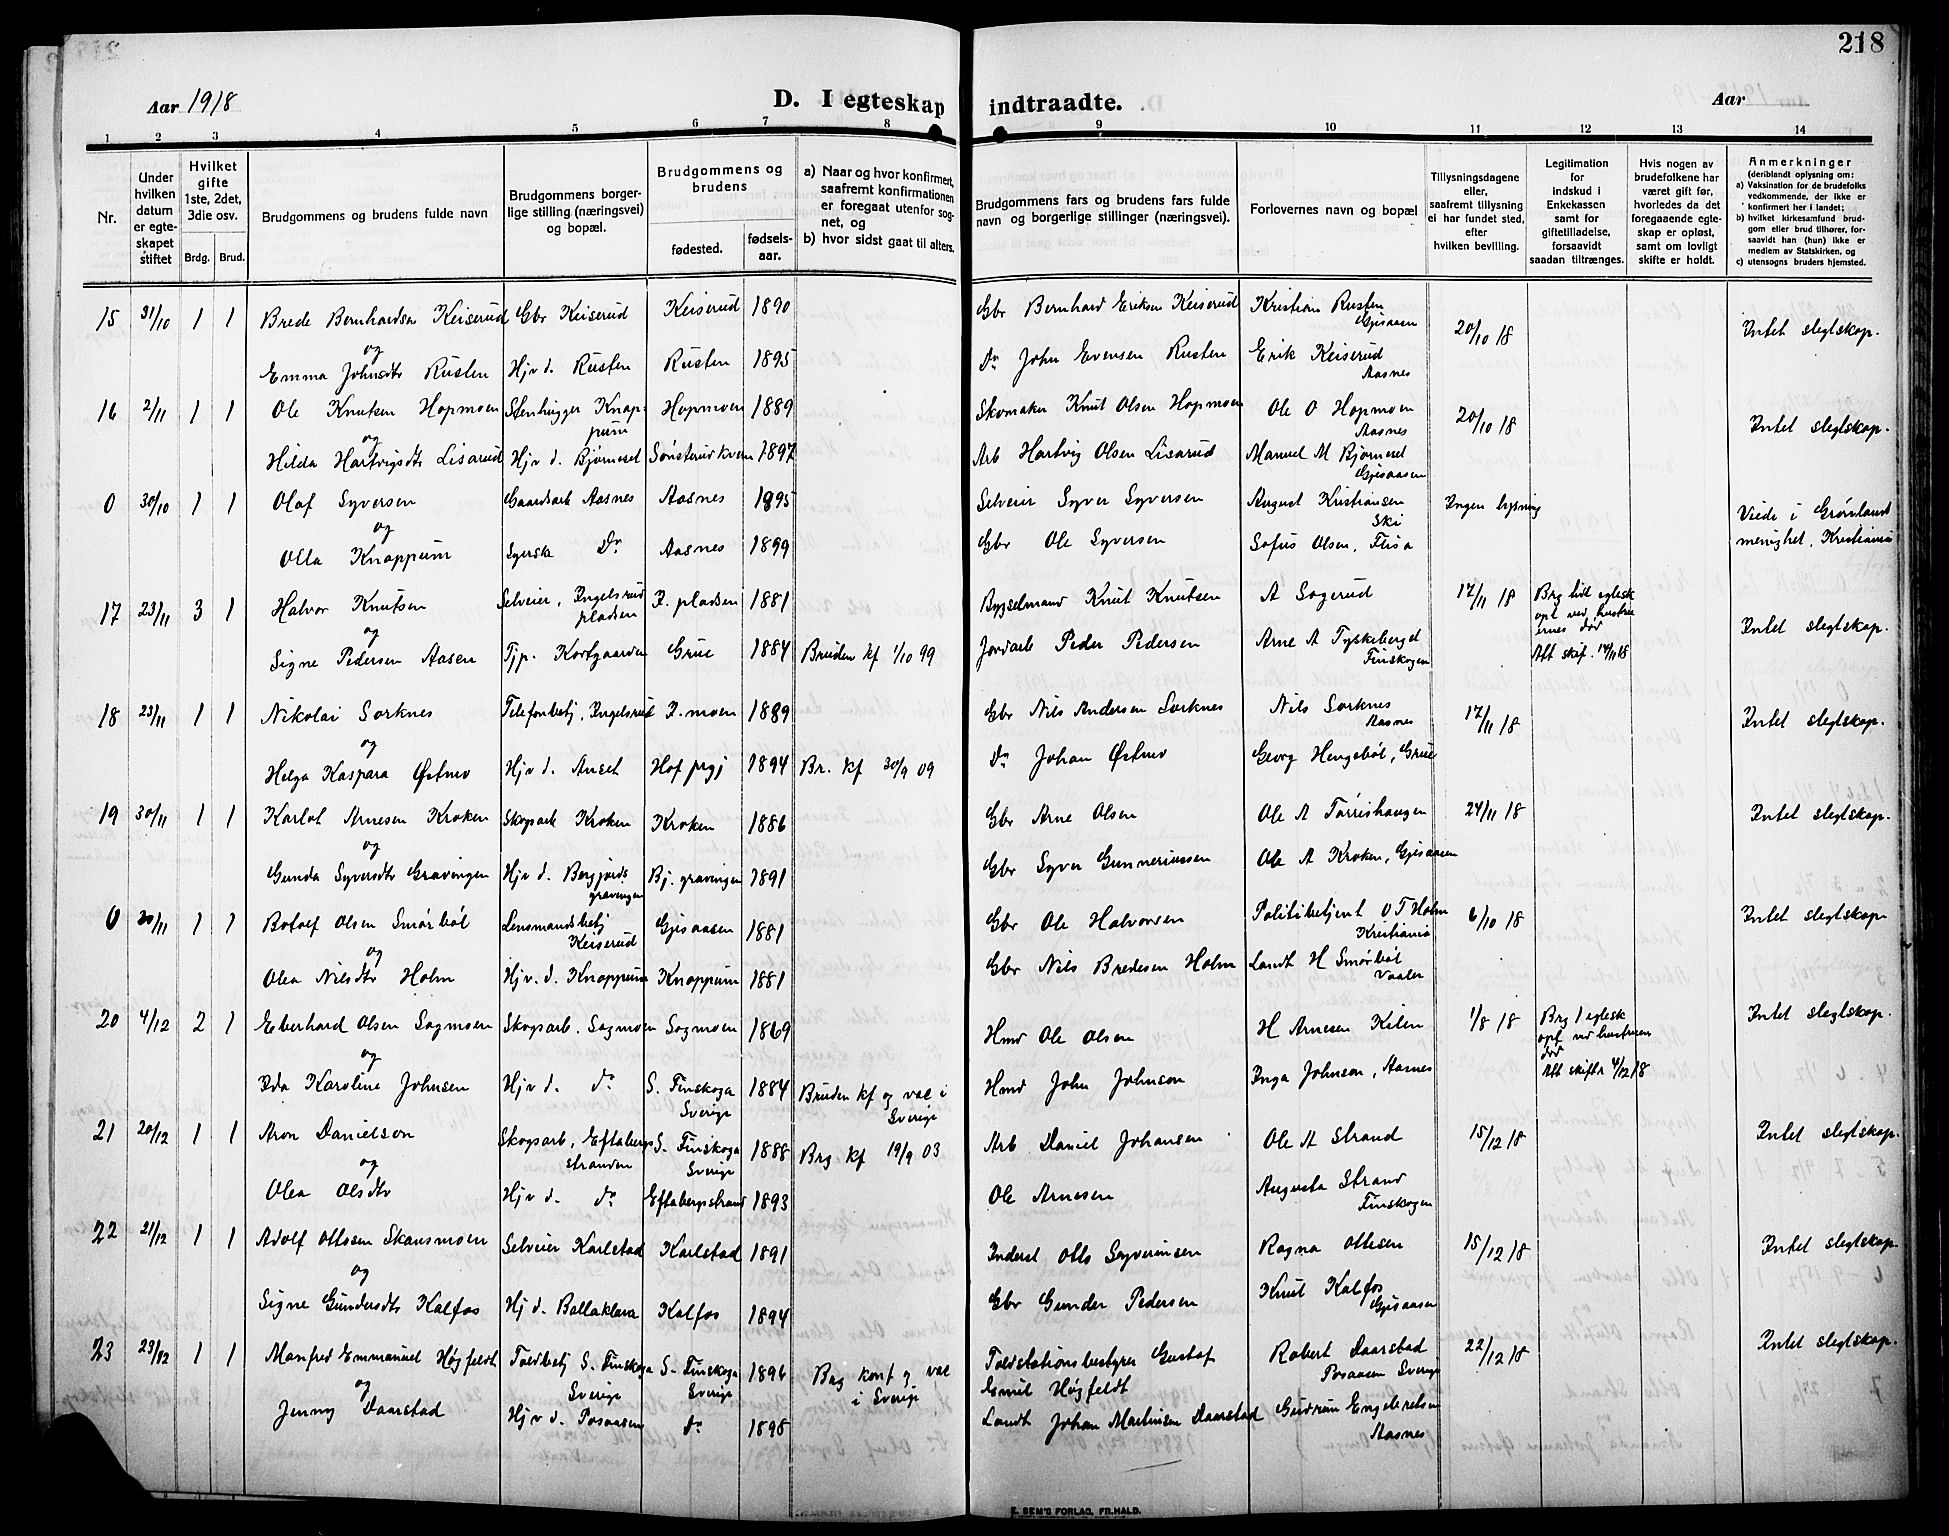 218
Aar 1918
D. I egteskap indtraadte.
Aar
1 2 3 4 5 6 7 8 9 10 11 12 13 14
Nr.
Under hvilken datum er egteskapet stiftet
Hvilket gifte 1ste, 2det, 3die osv.
Brdg. Brud.
Brudgommens og brudens fulde navn
Brudgommens borgerlige stilling (næringsvei) og bopæl.
Brudgommens og brudens
fødested.
fødselsaar.
a) Naar og hvor konfirmert, saafremt konfirmationen er foregaat utenfor sognet, og
b) hvor sidst gaat til alters.
Brudgommens fars og brudens fars fulde navn og borgerlige stillinger (næringsvei).
Forlovernes navn og bopæl
Tillysningsdagene eller, saafremt tillysning ei har fundet sted, efter hvilken bevilling.
Legitimation for indskud i Enkekassen samt for giftetilladelse, forsaavidt saadan tiltrænges.
Hvis nogen av brudefolkene har været gift før, hvorledes da det foregaaende egteskap er opløst, samt om lovligt skifte er holdt.
Anmerkninger (deriblandt oplysning om:
a) Vaksination for de brudefolks vedkommende, der ikke er konfirmert her i landet;
b) hvilket kirkesamfund brudgom eller brud tilhører, forsaavidt han (hun) ikke er medlem av Statskirken, og
c) utensogns bruders hjemsted.
15 31/10 1 1 Brede Bernhardsen Keiserud Gbr Keiserud Keiserud 1890 Gbr Bernhard Eriksen Keiserud Kristian Rusten Gjesaasen 20/10 18 Intet slegtskap.
og
Emma Johnsdtr Rusten Hjv d. Rusten Rusten 1895 Do John Evensen Rusten Erik Keiserud Aasnes
16 2/11 1 1 Ole Knutsen Hopmoen Stenhugger Knappum Hopmoen 1889 Skomaker Knut Olsen Hopmoen Ole O Hopmoen Aasnes 20/10 18 Intet slegtskap.
og
Hilda Hartvigsdtr Lisarud Hjv d. Bjørneset Sønsterudkvern 1897 Arb Hartvig Olsen Lisarud Manuel M Bjørneset Gjesaasen
0 30/10 1 1 Olaf Syversen Gaardsarb Aasnes Aasnes 1895 Selveier Syver Syversen August Kristiansen Ski Ingen lysning Viede i Grønland menighet, Kristiania
og
Olla Knappum Syerske Do Aasnes 1899 Gbr Ole Syversen Sofus Olsen, Flisa
17 23/11 3 1 Halvor Knutsen Selveier, Engelsrudpladsen E. pladsen 1881 Bygselmand Knut Knutsen A Sagerud 17/11 18 Brg tidl eglesk opl ved hustruernes død Att skif. 14/11 18 Intet slegtskap.
og
Signe Pedersen Aasen Tjp. Kortgaarden Grue 1884 Bruden kf 1/10 99 Jordarb Peder Pedersen Arne A Tyskeberget Finskogen
18 23/11 1 1 Nikolai Sorknes Telefonbetj, Engelsrud E. moen 1889 Gbr Nils Andersen Sorknes Nils Sorknes Aasnes 17/11 18 Intet slegtskap.
og
Helga Kaspara Østmo Hjv d. Anset Hof prgj 1894 Br. kf 30/9 09 Do Johan Østmo Georg Hengsbøl, Grue
19 30/11 1 1 Karlot Arnesen Kroken Skogsarb Kroken Kroken 1886 Gbr Arne Olsen Ole A Tørrishaugen 24/11 18 Intet slegtskap.
og
Gunda Syversdtr Gravingen Hjv d. Bergjordsgravingen Bj. gravingen 1891 Gbr Syver Gunneriussen Ole A Kroken, Gjesaasen
0 30/11 1 1 Botolf Olsen Smørbøl Lensmandsbetj Keiserud Gjesaasen 1881 Gbr Ole Halvorsen Politibetjent O T Holm Kristiania 6/10 18 Intet slegtskap.
og
Olea Nilsdtr Holm Hjv. d. Knappum Knappum 1881 Gbr Nils Bredesen Holm Landh H Smørbøl Vaaler
20 4/12 2 1 Eberhard Olsen Sagmoen Skogsarb. Sagmoen Sagmoen 1869 Hmd Ole Olsen H Arnesen Kilen 1/8 18 Brg 1 eglesk opl ved hustruens død Att skiftr 4/12 18 Intet slegtskap.
og
Ida Karoline Johnsen Hjv d. do S. Finskoga Sverige 1884 Bruden kf og vac i Sverige Hmd John Johnson Inga Johnson, Aasnes
21 20/12 1 1 Aron Danielsen Skogsarb, Eftabergsstranden S. Finskoga Sverige 1888 Brg kf 19/9 03 Arb Daniel Johansen Ole A Strand 15/12 18 Intet slegtskap.
og
Olea Olsdtr Hjv d. do Eftabergstrand 1893 Ole Arnesen Augusta Strand Finskogen
22 21/12 1 1 Adolf Ottosen Skansmoen Selveier Karlstad Karlstad 1891 Inderst Otto Syverinsen Ragna Ottesen 15/12 18 Intet slegtskap.
og
Signe Gundersdtr Kalfos Hj d. Ballaklava Kalfos 1894 Gbr Gunder Pedersen Knut Kalfos Gjesaasen
23 23/12 1 1 Manfred Emmanuel Høgfeldt Toldbetj S. Finskoga Sverige S. Finskoga Sverige 1896 Brg konf og vac i Sverige Toldstationsbestyrer Gustaf Emil Høgfeldt Robert Daarstad Posaasen Sverige 22/12 18 Intet slegtskap.
og
Jenny Daarstad Hjv d. Posaasen do 1898 Landh Johan Martinsen Daarstad Gudrun Engebretsen Aasnes
E. SEM'S FORLAG, FR.HALD.